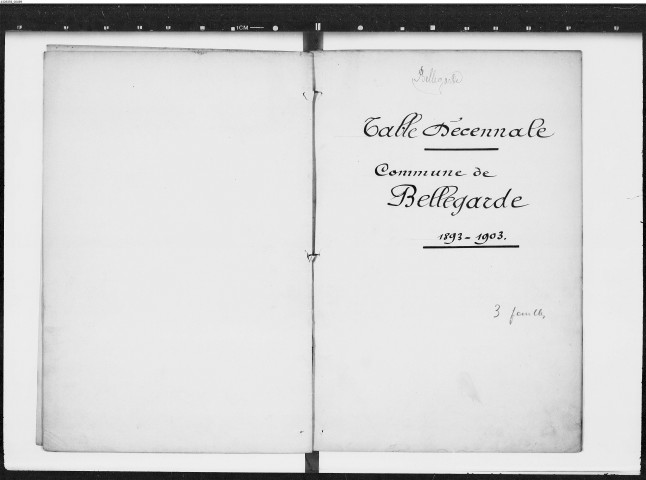 Bellegarde
Table Décennale
Commune de
Bellegarde
1893 - 1903.
3 feuilles